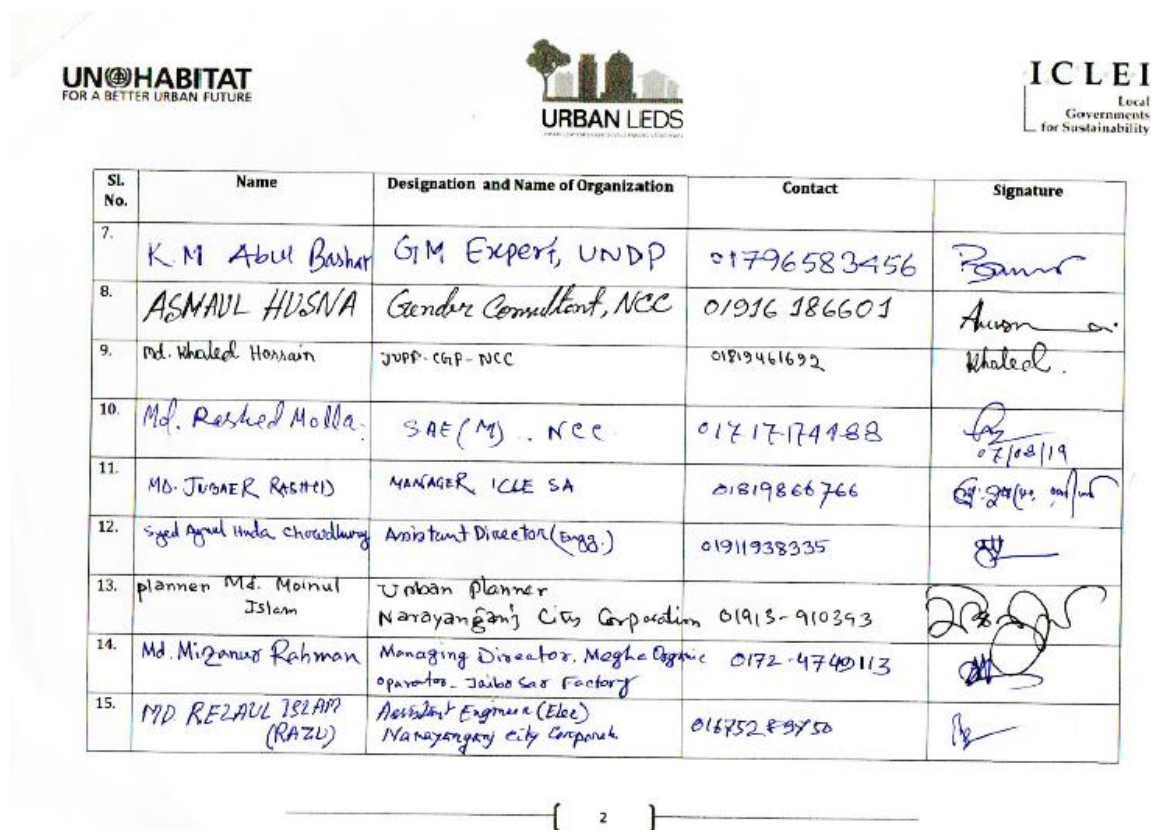 UN HABITAT
FOR A BETTER URBAN FUTURE
URBAN LEDS
ICLEI
Local
Governments
for Sustainability
Sl. No. Name Designation and Name of Organization Contact Signature
7. K.M Abul Bashar GM Expert, UNDP 01796583456
8. ASMAUL HUSNA Gender Consultant, NCC 01916 186601
9. Md. Khaled Hossain JUPF-CGP-NCC 01819461692 Khaled.
10. Md. Rashed Molla. SAE(M) .. NCC. 01717174488
07/08/19
11. MD. JUBAER RASHID MANAGER ICLE SA 01819866766
12. Syed Huda Chowdhury Assistant Director (Engg.) 01911938335
13. planner Md. Moinul
Islam
Urban Planner
Narayanganj City Corporation 01913-910393
14. Md. Mizanur Rahman Managing Director, Megha Organic 0172-4749113
oparator- Jaibo Sar Factory
15. MD REZAUL ISLAM
(RAZU)
Assistant Engineer (Elec)
Narayanganj City Corporate
2